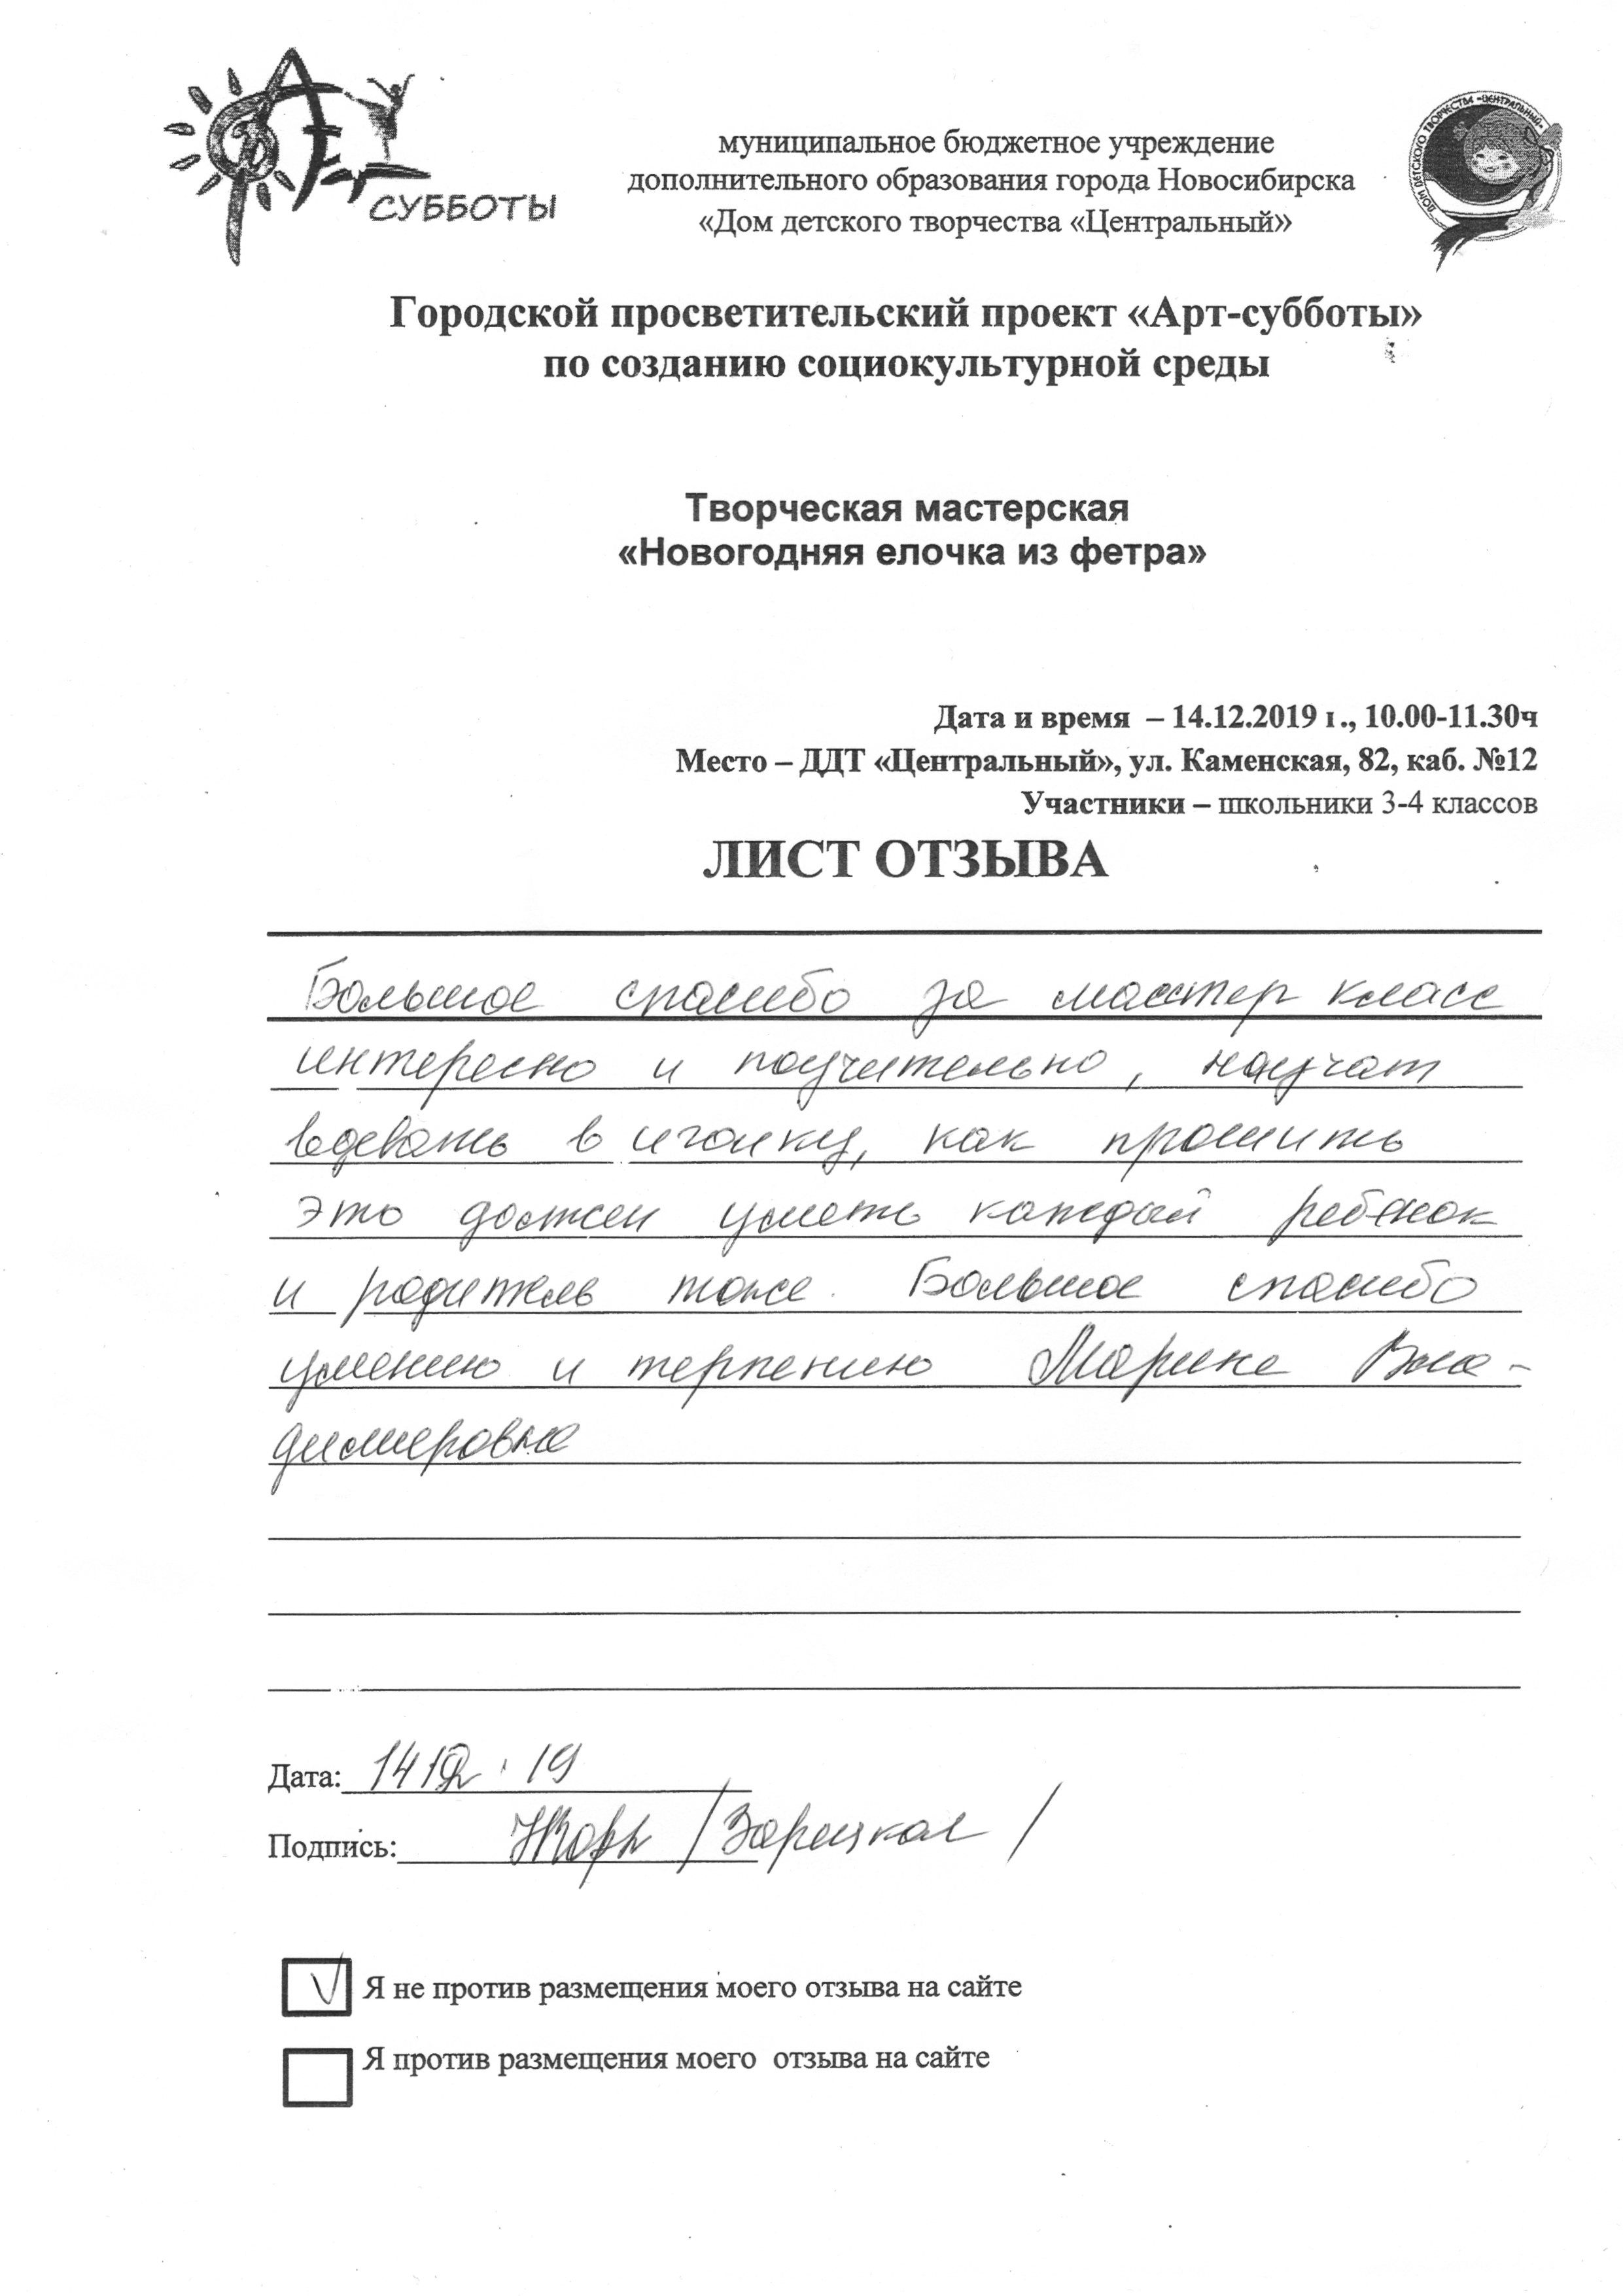 Арт
СУББОТЫ
муниципальное бюджетное учреждение
дополнительного образования города Новосибирска
«Дом детского творчества «Центральный»
ДОМ ДЕТСКОГО ТВОРЧЕСТВА «ЦЕНТРАЛЬНЫЙ»
Городской просветительский проект «Арт-субботы»
по созданию социокультурной среды
Творческая мастерская
«Новогодняя елочка из фетра»
Дата и время – 14.12.2019 г., 10.00-11.30ч
Место – ДДТ «Центральный», ул. Каменская, 82, каб. №12
Участники – школьники 3-4 классов
ЛИСТ ОТЗЫВА
Большое спасибо за масстер класс
интересно и поучительно, научат
вдевать в иголку, как прошить
это должен уметь каждый ребенок
и родитель тоже. Большое спасибо
умению и терпению Марине Вла-
димировне
Дата: 14 12 . 19
Подпись: /Зарецкая/
Я не против размещения моего отзыва на сайте
Я против размещения моего отзыва на сайте